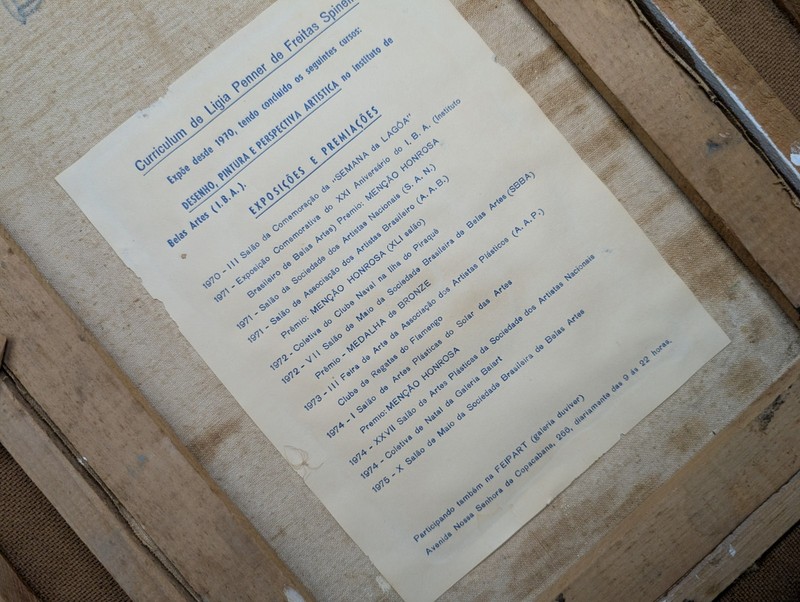 Curriculum de Ligia Penner de Freitas Spinel
Expõe desde 1970, tendo concluído os seguintes cursos:
DESENHO, PINTURA E PERSPECTIVA ARTISTICA no instituto de
Belas Artes (I.B.A.).
EXPOSIÇÕES E PREMIAÇÕES
1970 - III Salão da Comemoração da "SEMANA da LAGÔA"
1971 - Exposição Comemorativa do XXI Aniversário do I. B. A. (Instituto
Brasileiro de Belas Artes) Premio: MENÇÃO HONROSA
1971 - Salão da Sociedade dos Artistas Nacionais (S. A. N.)
1971 - Salão da Associação dos Artistas Brasileiro (A. A. B.)
Prêmio: MENÇÃO HONROSA (XLI salão)
1972 - Coletiva do Clube Naval na Ilha do Piraquê
1972 - VII Salão de Maio da Sociedade Brasileira de Belas Artes (SBBA)
Prêmio - MEDALHA de BRONZE
1973 - III Feira de Arte da Associação dos Artistas Plásticos (A. A. P.)
Clube de Regatas do Flamengo
1974 - I Salão de Artes Plásticas do Solar das Artes
Premio: MENÇÃO HONROSA
1974 - XXVII Salão de Artes Plásticas da Sociedade dos Artistas Nacionais
1974 - Coletiva de Natal da Galeria Baiart
1975 - X Salão de Maio da Sociedade Brasileira de Belas Artes
Participando também na FEIPART (galeria duviver)
Avenida Nossa Senhora de Copacabana, 266, diariamente das 9 às 22 horas.